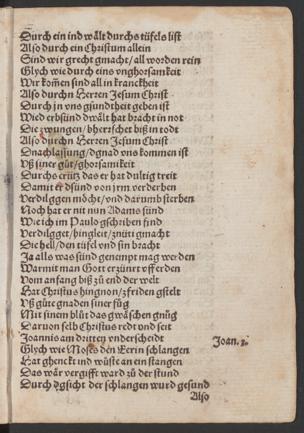 Durch ein ind wält durchs tüfels list
Also durch ein Christum allein
Sind wir grecht gmacht/all worden rein
Glych wie durch eins vnghorsamkeit
Wir kom̃en sind all in kranckheit
Also durchn Herren Jesum Christ
Durch jn vns gsundtheit geben ist
Wied erbsünd dwält hat bracht in not
Die zwungen/bherrschet biß in todt
Also durchn Herren Jesum Christ
Dnachlassung/dgnad vns kommen ist
Vß siner güt/ghorsamkeit
Durchs crütz das er hat dultig treit
Damit er dsünd von jrm verderben
Verdilggen möcht/vnd darumb sterben
Noch har er nit min Adams sünd
Wie ich im Paulo gschriben find
Verdilgget/hingleit/znüti gmacht
Die hell/den tüfel vnd sin bracht
Ja alls was sünd genempt mag werden
Warmit man Gott erzürnt vff erden
Vom anfang biß zů end der welt
Hat Christus hingnon/zfriden gstelt
Vß güte gnaden siner füg
Mit sinem blůt das gwäschen gnůg
Daruon selb Christus redt vnd seit
Joannis am dritten vnderscheidt
Joan. 3.
Glych wie Moses den Eerin schlangen
Hat ghenckt ind wüste an ein stangen
Das wär vergifft ward zů der stund
Durch dgsicht der schlangen wurd gesund
Also